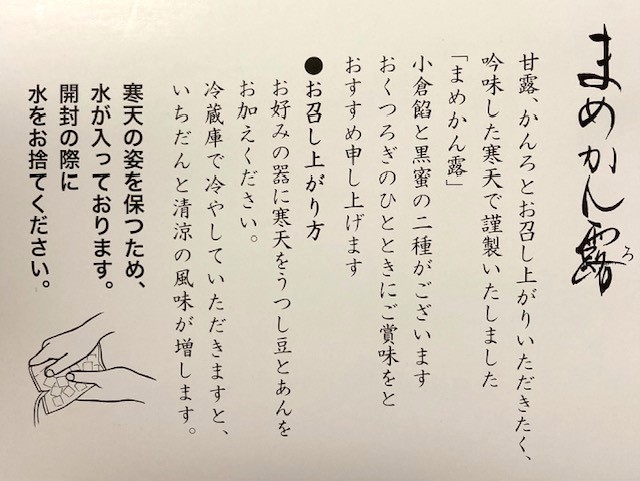 まめかん露
ろ
甘露、かんろとお召し上がりいただきたく、
吟味した寒天で謹製いたしました
「まめかん露」
小倉餡と黒蜜の二種がございます
おくつろぎのひとときにご賞味をと
おすすめ申し上げます
●お召し上がり方
お好みの器に寒天をうつし豆とあんを
お加えください。
冷蔵庫で冷やしていただきますと、
いちだんと清涼の風味が増します。
寒天の姿を保つため、
水が入っております。
開封の際に
水をお捨てください。